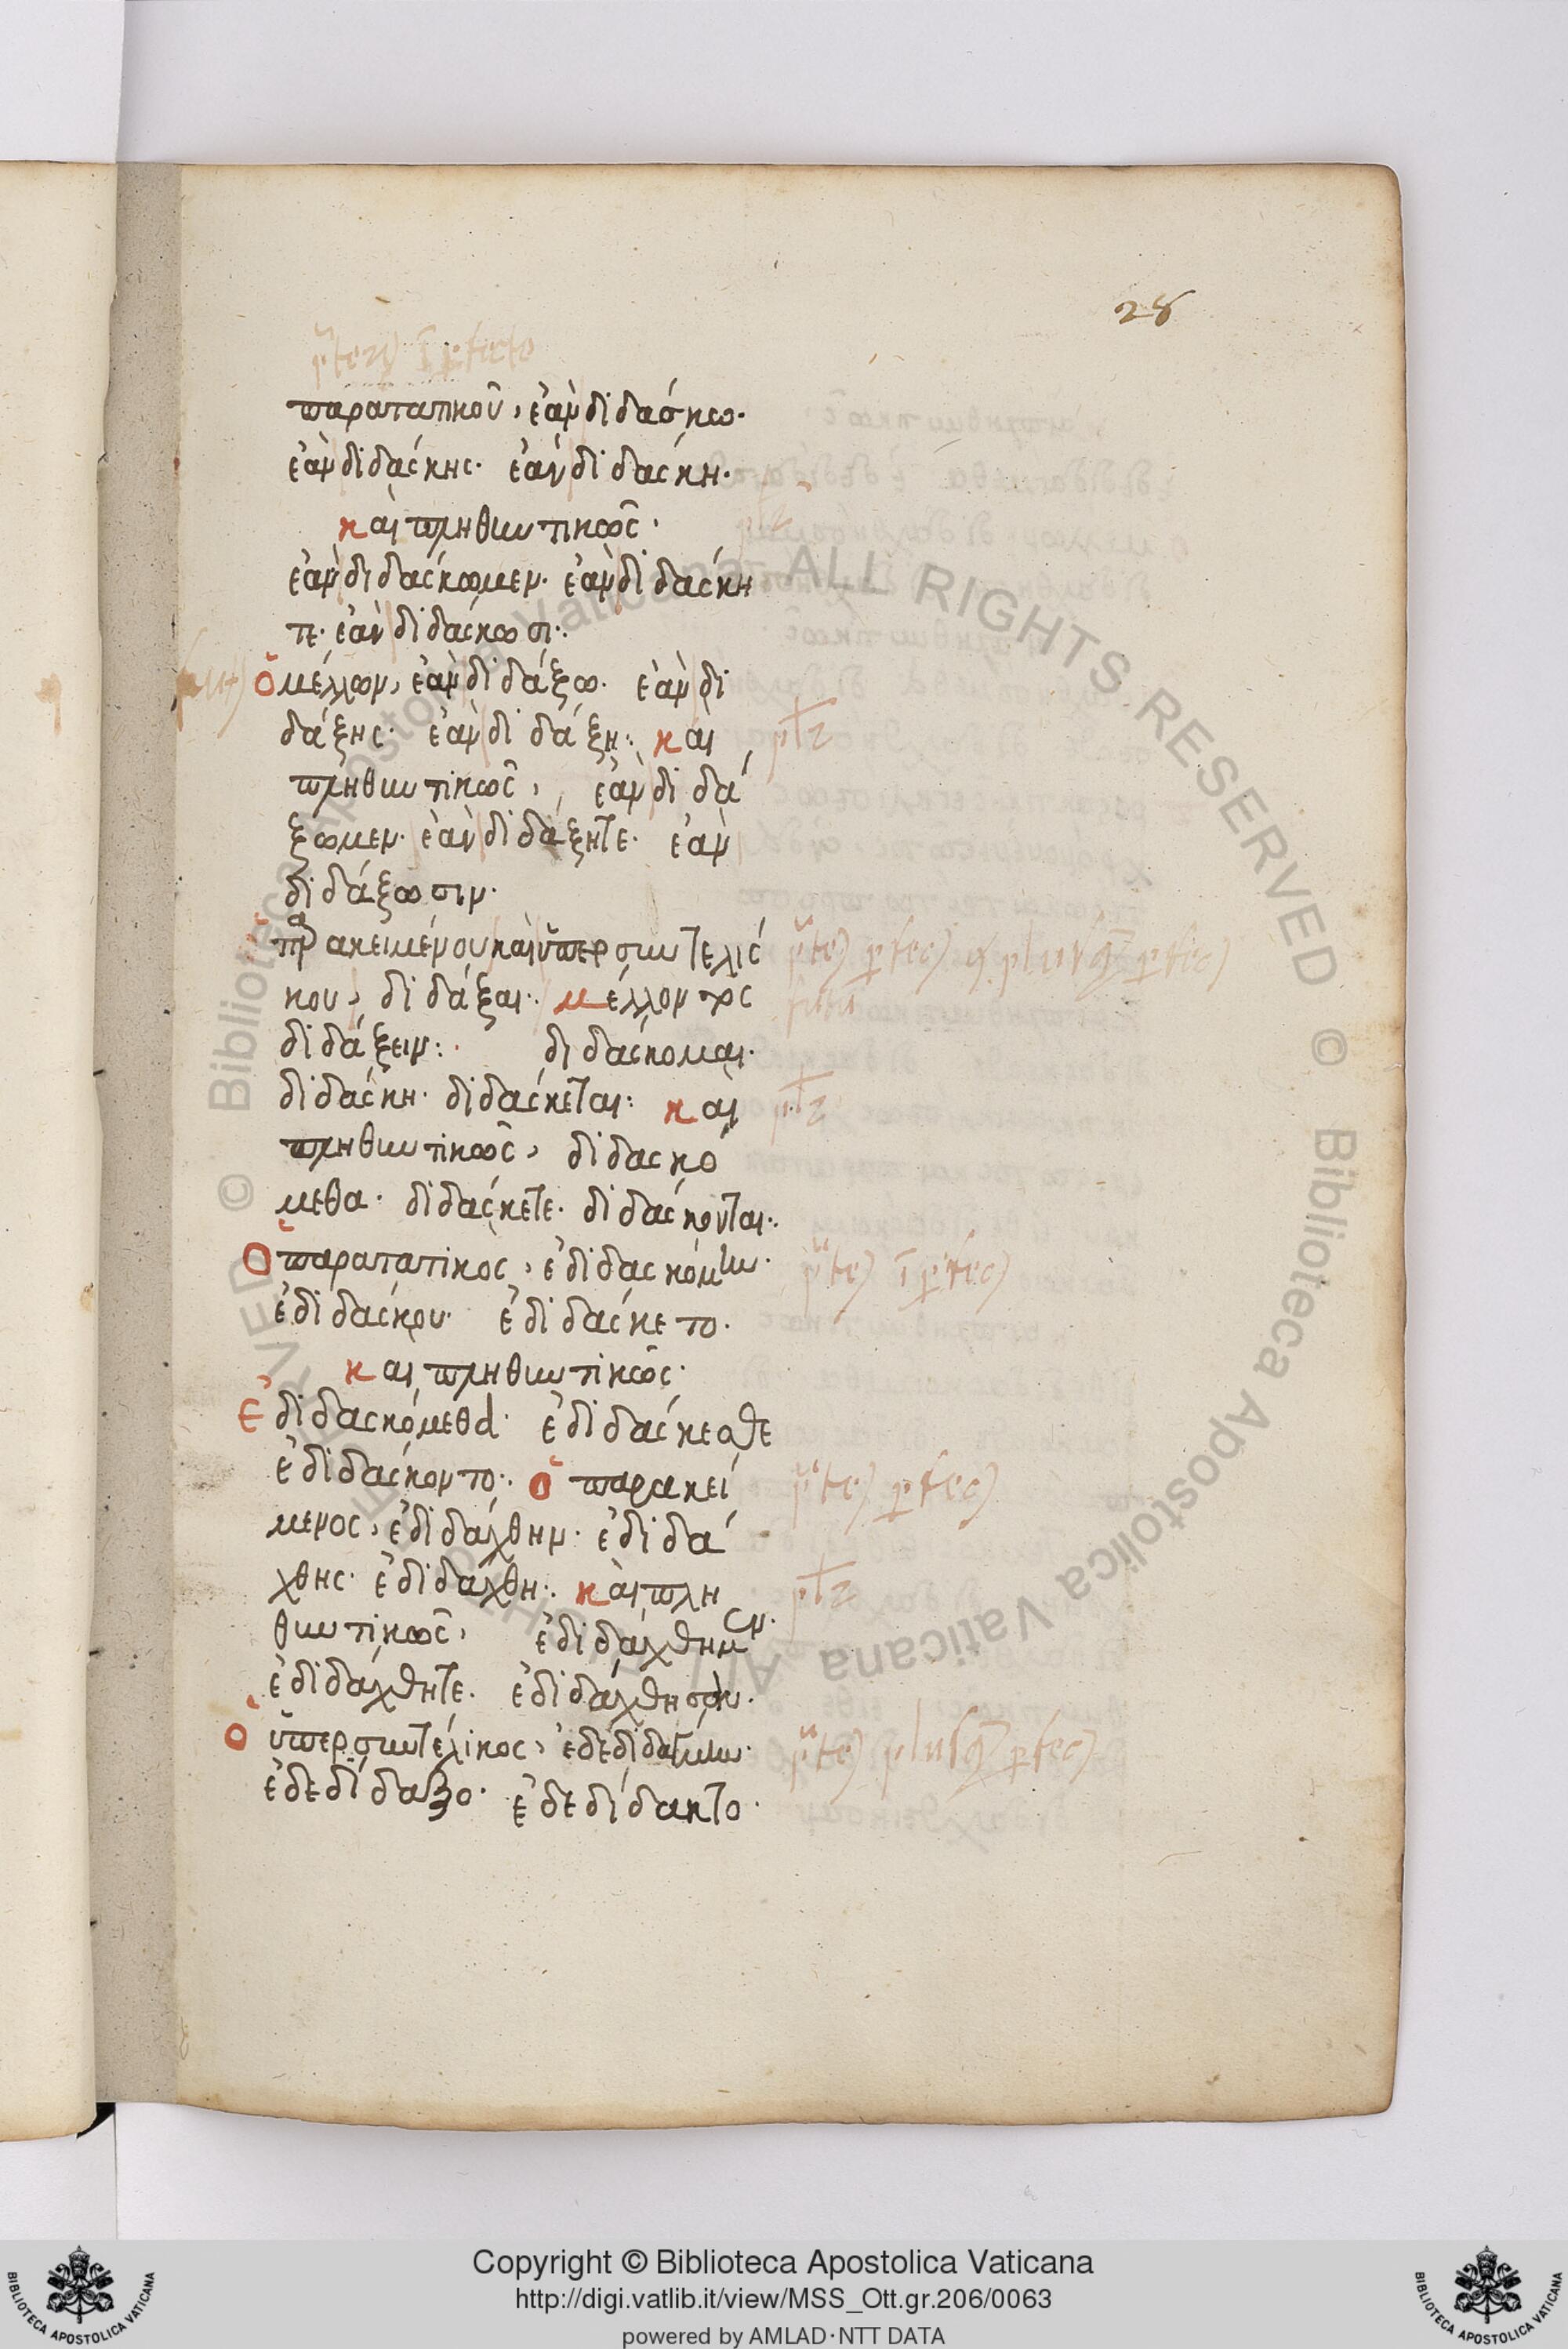 28
παρατατικοῦ, ἐὰν διδάσκω.
ἐὰν διδάσκης. ἐὰν διδάσκη.
καὶ πληθυντικῶς.
ἐὰν διδάσκωμεν. ἐὰν διδάσκη
τε. ἐὰν διδάσκωσι.
ὁ μέλλων, ἐὰν διδάξω. ἐὰν δι
δάξης. ἐὰν διδάξη: καὶ
πληθυντικῶς, ἐὰν διδά
ξωμεν. ἐὰν διδάξητε. ἐὰν
διδάξωσιν.
παρακειμένου καὶ ὑπερσυντελίς
κου, διδάξαι. μέλλοντος
διδάξειν: διδάσκομαι.
διδάσκη. διδάσκεται: καὶ
πληθυντικῶς, διδασκό
μεθα. διδάσκετε. διδάσκονται.
Ὁ παρατατικὸς, ἐδιδασκόμην.
ἐδιδάσκου. ἐδιδάσκετο.
καὶ πληθυντικῶς.
Ἐδιδασκόμεθα. ἐδιδάσκεσθε
ἐδιδάσκοντο. ὁ παρακεί
μενος, ἐδιδάχθην. ἐδιδά
χθης. ἐδιδάχθη: καὶ πλη
θυντικῶς, ἐδιδάχθημεν.
ἐδιδάχθητε. ἐδιδάχθησαν.
ὁ ὑπερσυντέλικος, ἐδεδιδάγμην.
ἐδεδίδαξο. ἐδεδίδακτο.
Copyright © Biblioteca Apostolica Vaticana
http://digi.vatlib.it/view/MSS_Ott.gr.206/0063
powered by AMLAD·NTT DATA